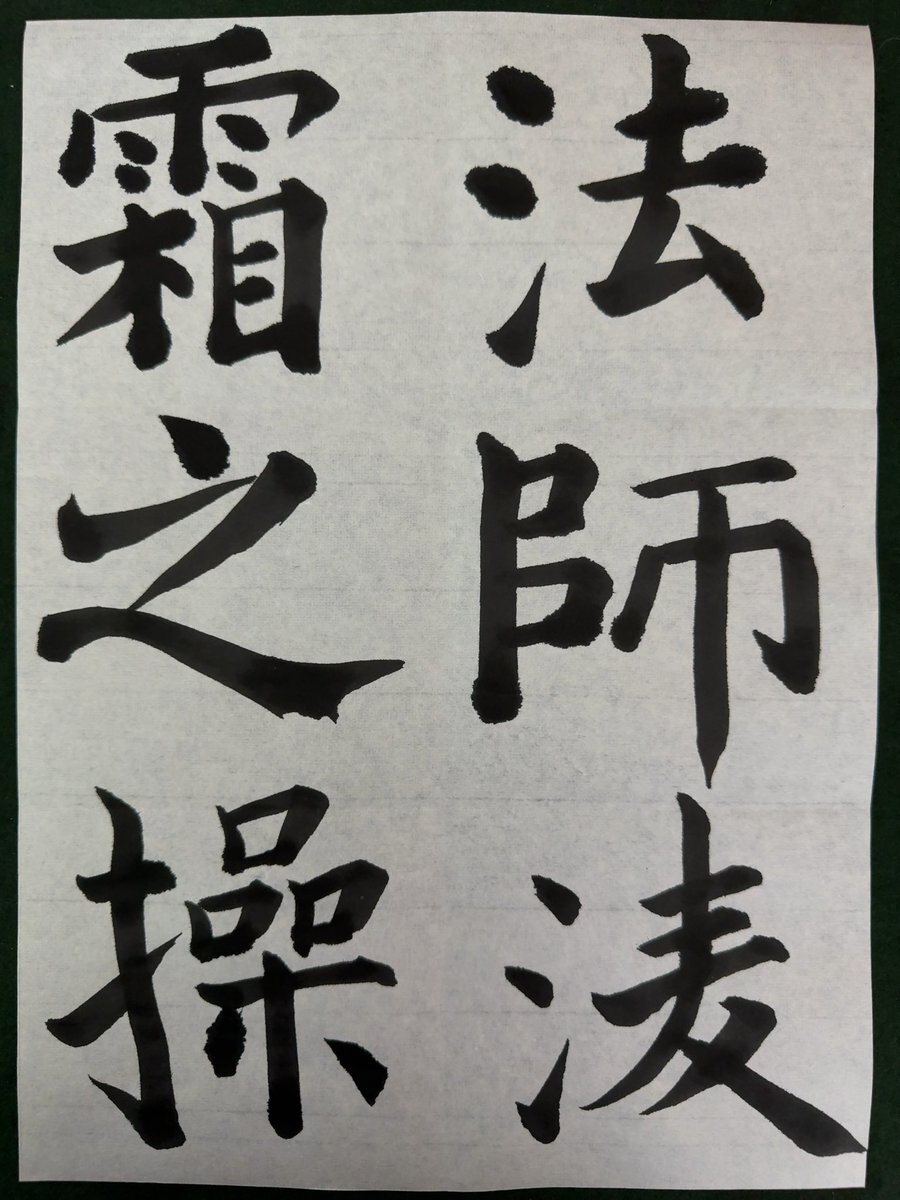 法師淩
霜之操